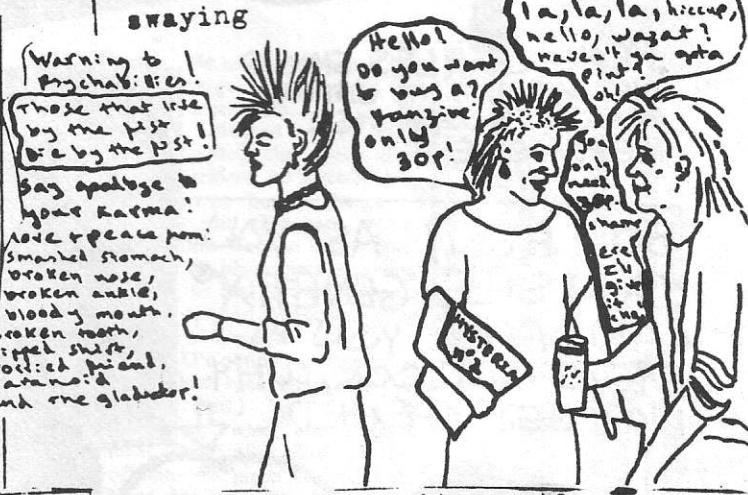 swaying
Warning to
Psychobillies!
Those that live
by the fist
Die by the fist!
Say goodbye to
your karma!
Love & peace from:
smashed stomach,
broken nose,
broken ankle,
bloody mouth,
broken tooth,
ripped shirt,
friend,
paranoid
and the gladiator!
Hello!
Do you want
to buy a?
Fanzine
only
30p!
la, la, la, hiccup,
hello, wazat?
haven't ya gota
pint?
oh!
you
only
need
30p
HYSTERIA
No 2